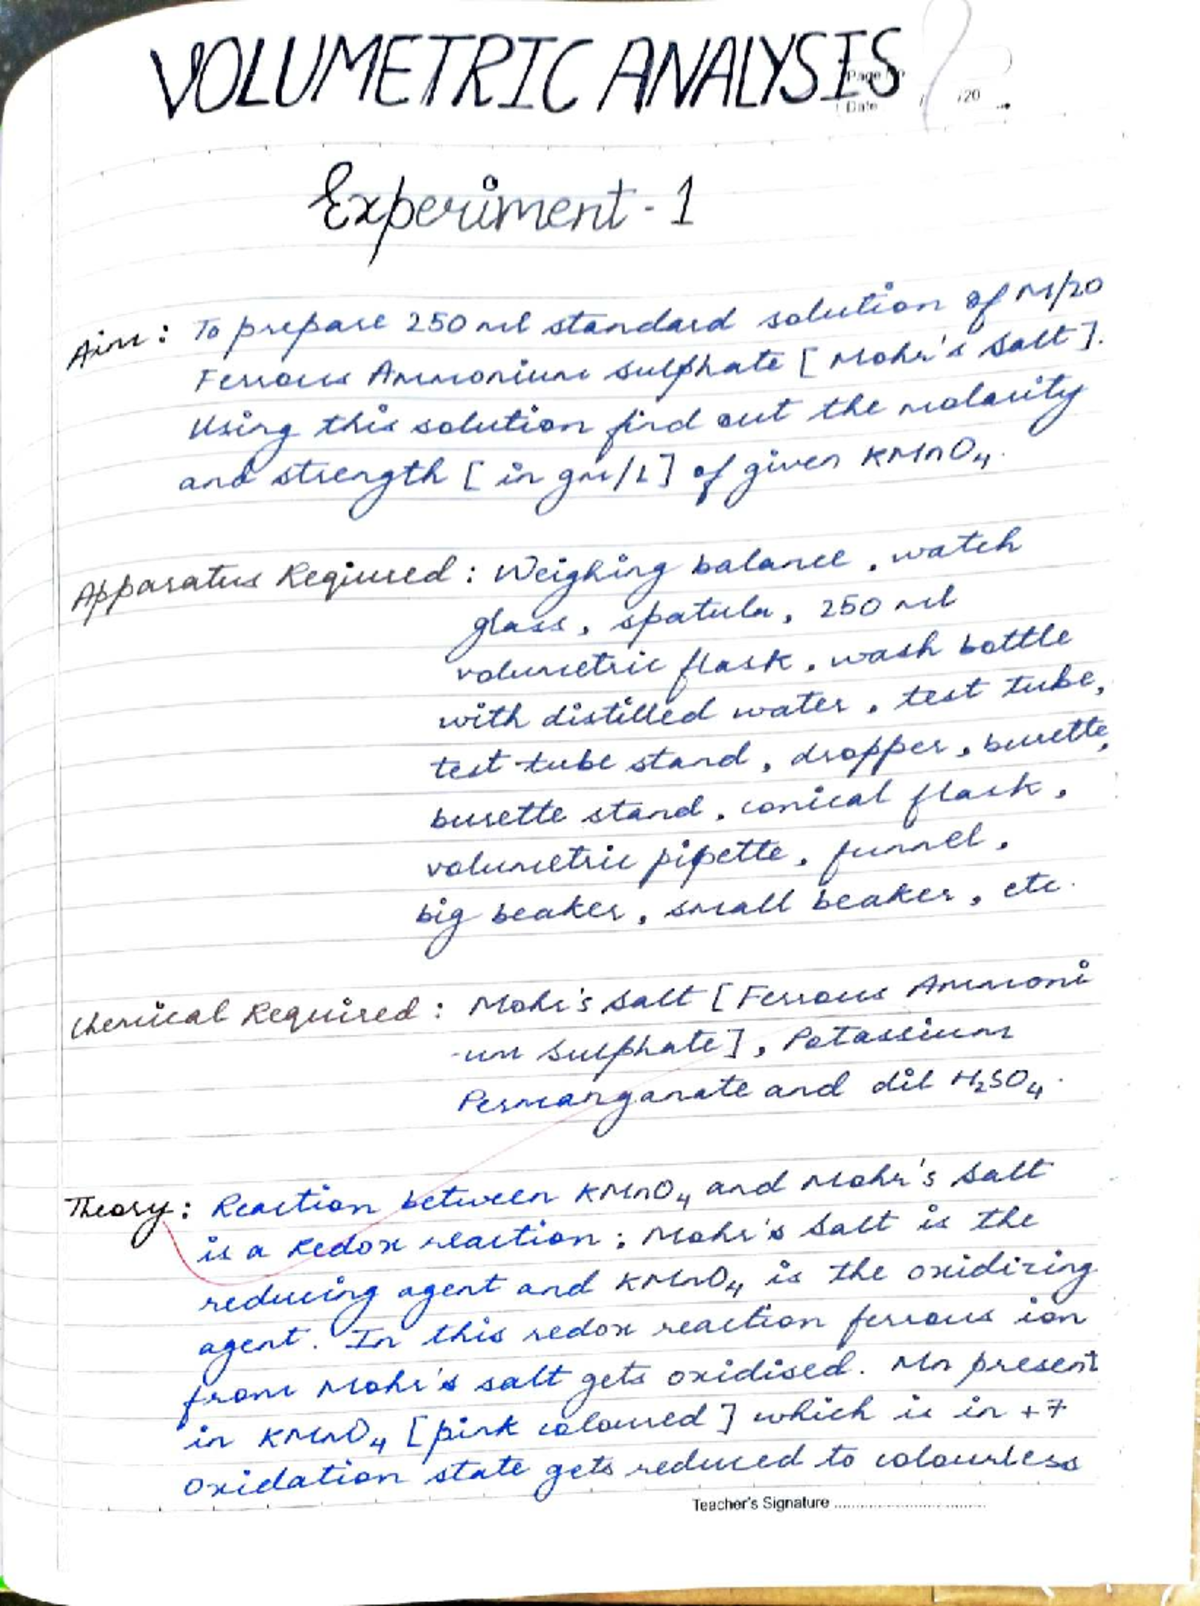 VOLUMETRIC ANALYSIS
Page No
Date / /20
Experiment - 1
Aim : To prepare 250 ml standard solution of M/20
Ferrous Ammonium Sulphate [ Mohr's Salt ].
Using this solution find out the molarity
and strength [ in gm/L ] of given KMnO4.
Apparatus Reqiured : Weighing balance , watch
glass , spatula , 250 ml
volumetric flask , wash bottle
with distilled water , test tube,
test tube stand , dropper , burette,
burette stand , conical flask ,
volumetric pipette , funnel ,
big beaker , small beaker , etc.
Chemical Required : Mohr's Salt [ Ferrous Ammoni
-um Sulphate ] , Potassium
Permanganate and dil H2SO4.
Theory : Reaction between KMnO4 and Mohr's Salt
is a Redox reaction ; Mohr's Salt is the
reducing agent and KMnO4 is the oxidizing
agent. In this redox reaction ferrous ion
from Mohr's salt gets oxidised. Mn present
in KMnO4 [ pink coloured ] which is in +7
oxidation state gets reduced to colourless
Teacher's Signature ..................................